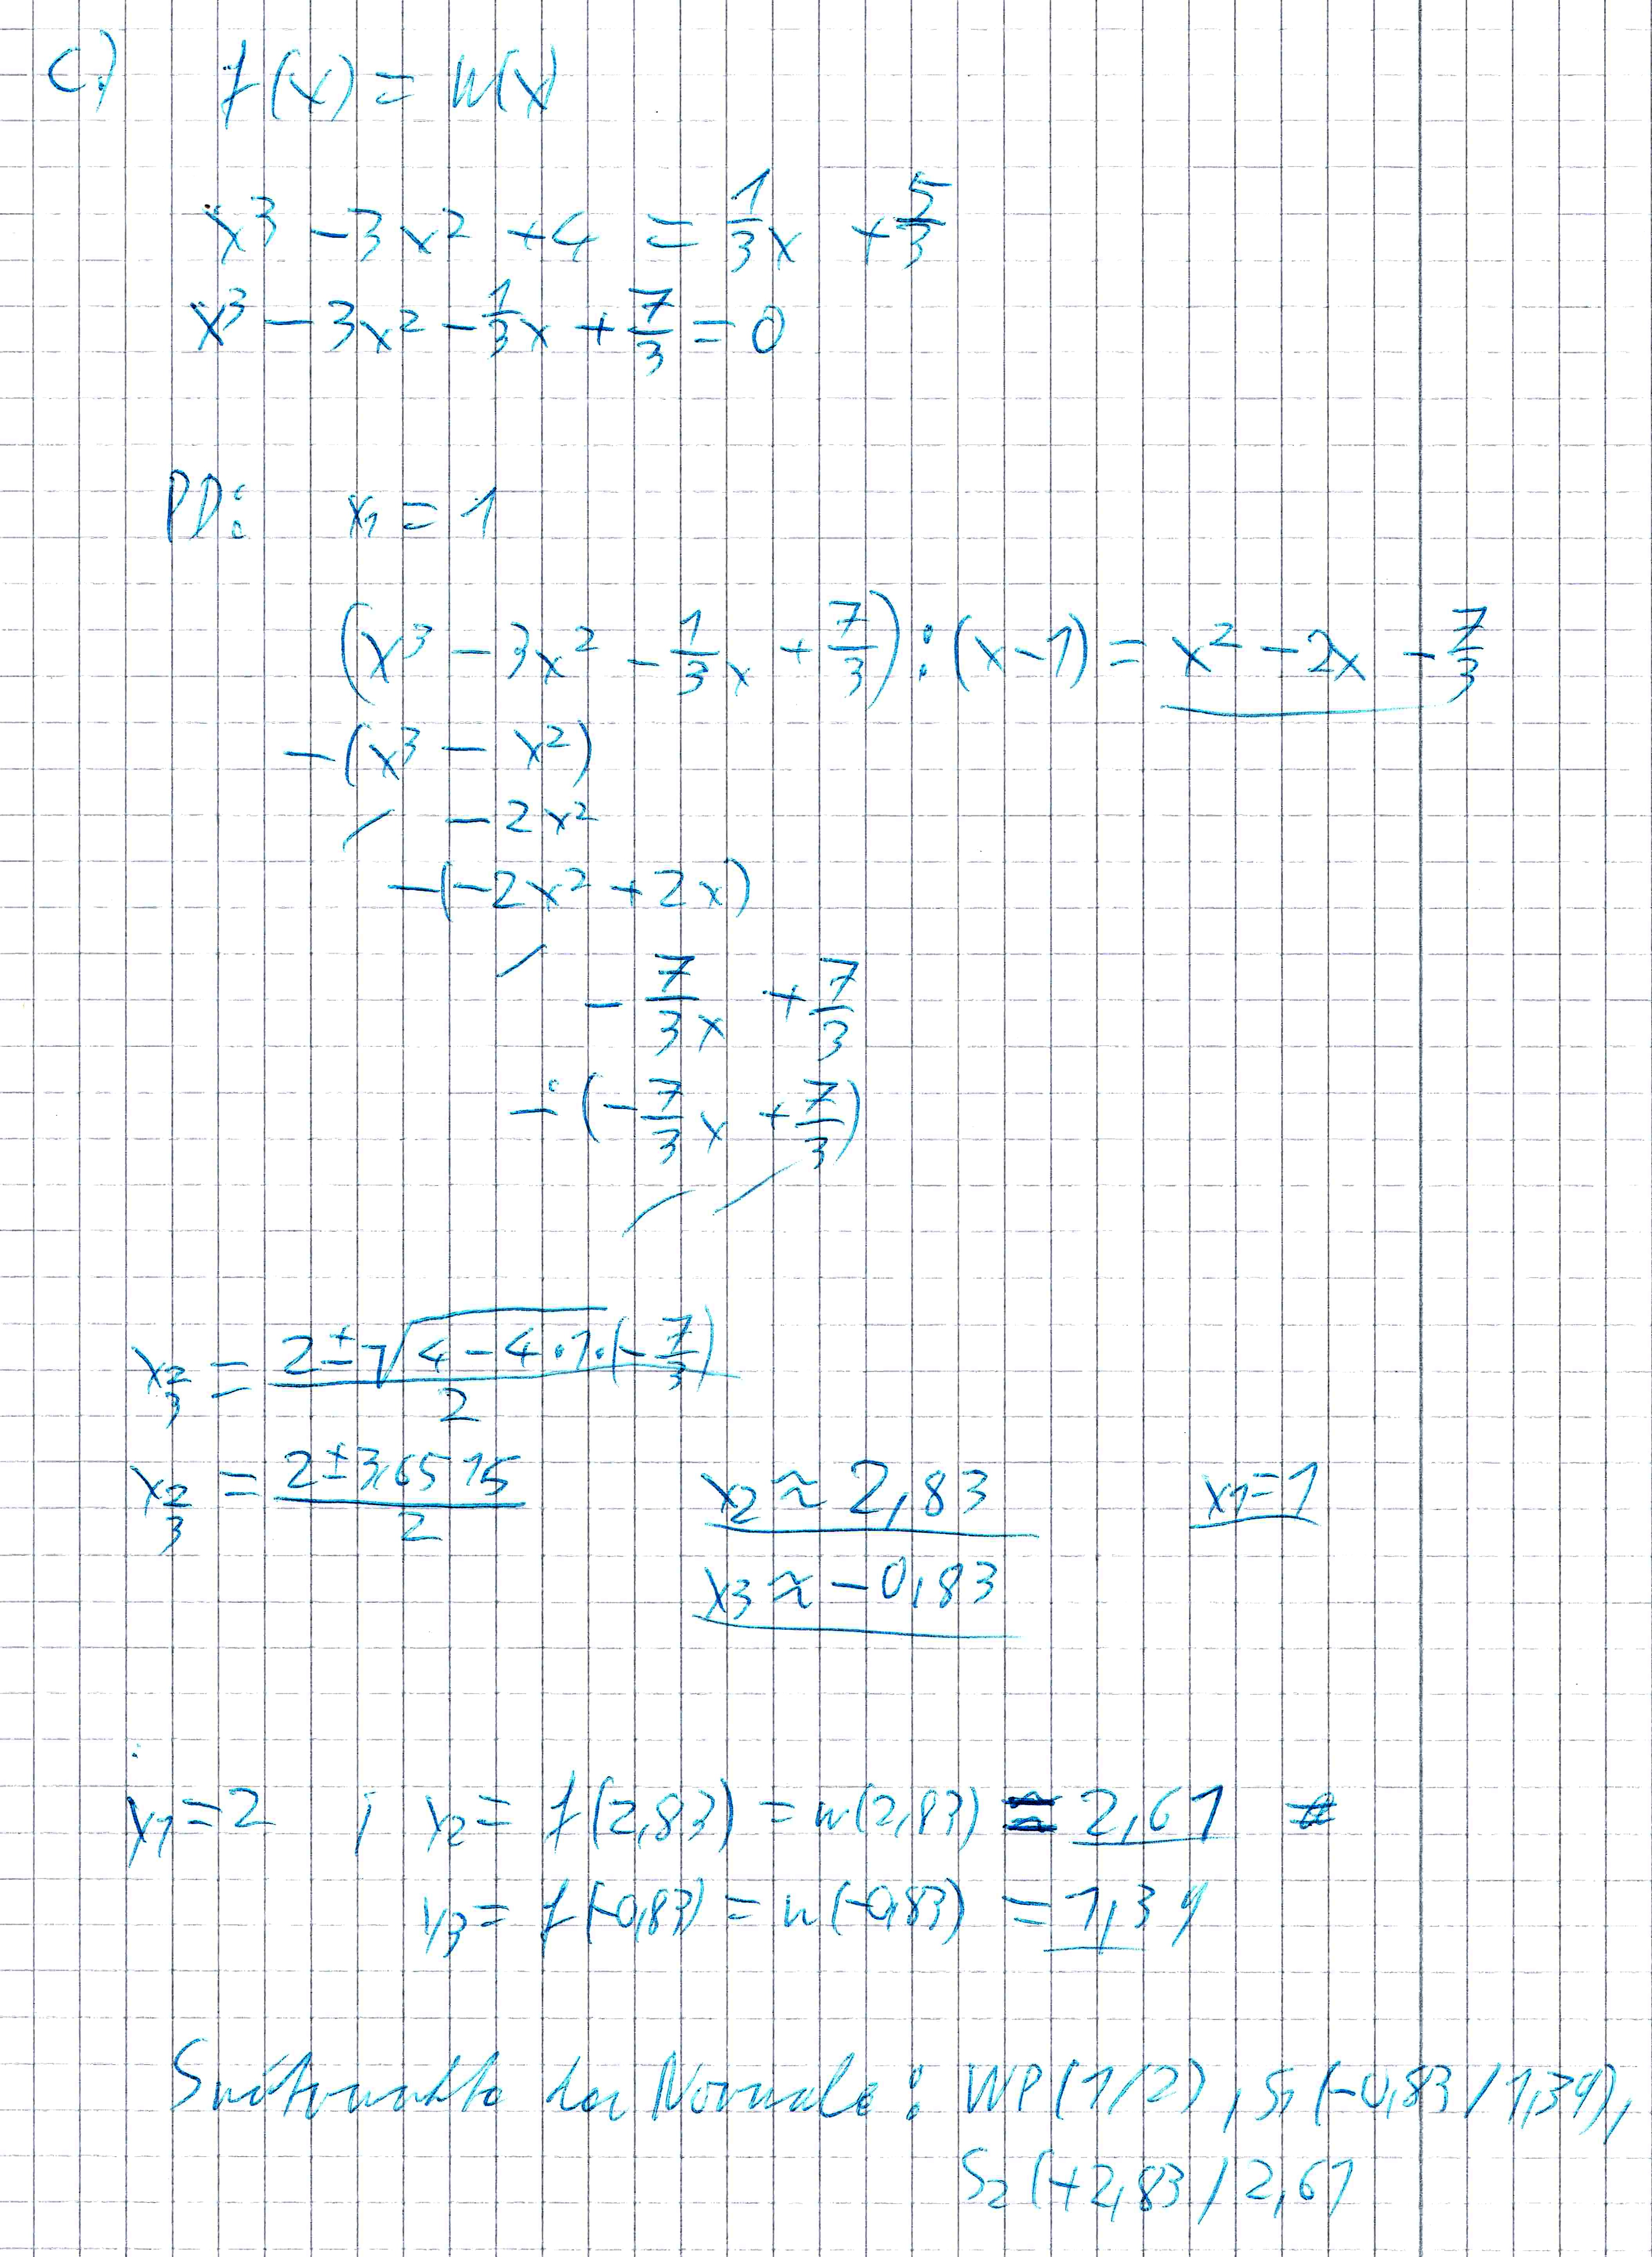 c.) f(x) = n(x)
x³ - 3x² + 4 = 1/3 x + 5/3
x³ - 3x² - 1/3 x + 7/3 = 0
PD: x₁ = 1
(x³ - 3x² - 1/3 x + 7/3) : (x-1) = x² - 2x - 7/3
-(x³ - x²)
/ - 2x²
-(-2x² + 2x)
/ - 7/3 x + 7/3
-(-7/3 x + 7/3)
/ /
x₂/₃ = (2 ± √(4 - 4·1·(-7/3)))/2
x₂/₃ = (2 ± 3,6515)/2 x₂ ≈ 2,83 x₁ = 1
x₃ ≈ -0,83
y₁ = 2 ; y₂ = f(2,83) = n(2,83) ≈ 2,61
y₃ = f(-0,83) = n(-0,83) = 1,39
Schnittpunkte der Normale: WP(1/2), S₁(-0,83/1,39),
S₂(+2,83/2,61